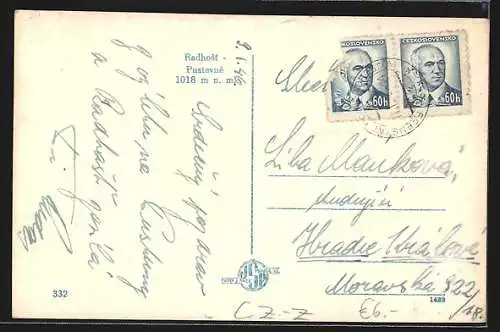 Radhošť -
Pustevně
1018 m n. m.
9. I. 46
Srdečný pozdrav
z výletu na Pustevny
a Radhošť posílá
ČESKOSLOVENSKO
ČESKOSLOVENSKO
60h
60h
Slečna
Liba Manková,
studující
Hradec Králové
Moravská 822
/18.
332
1423
CZ-Z
E6.-